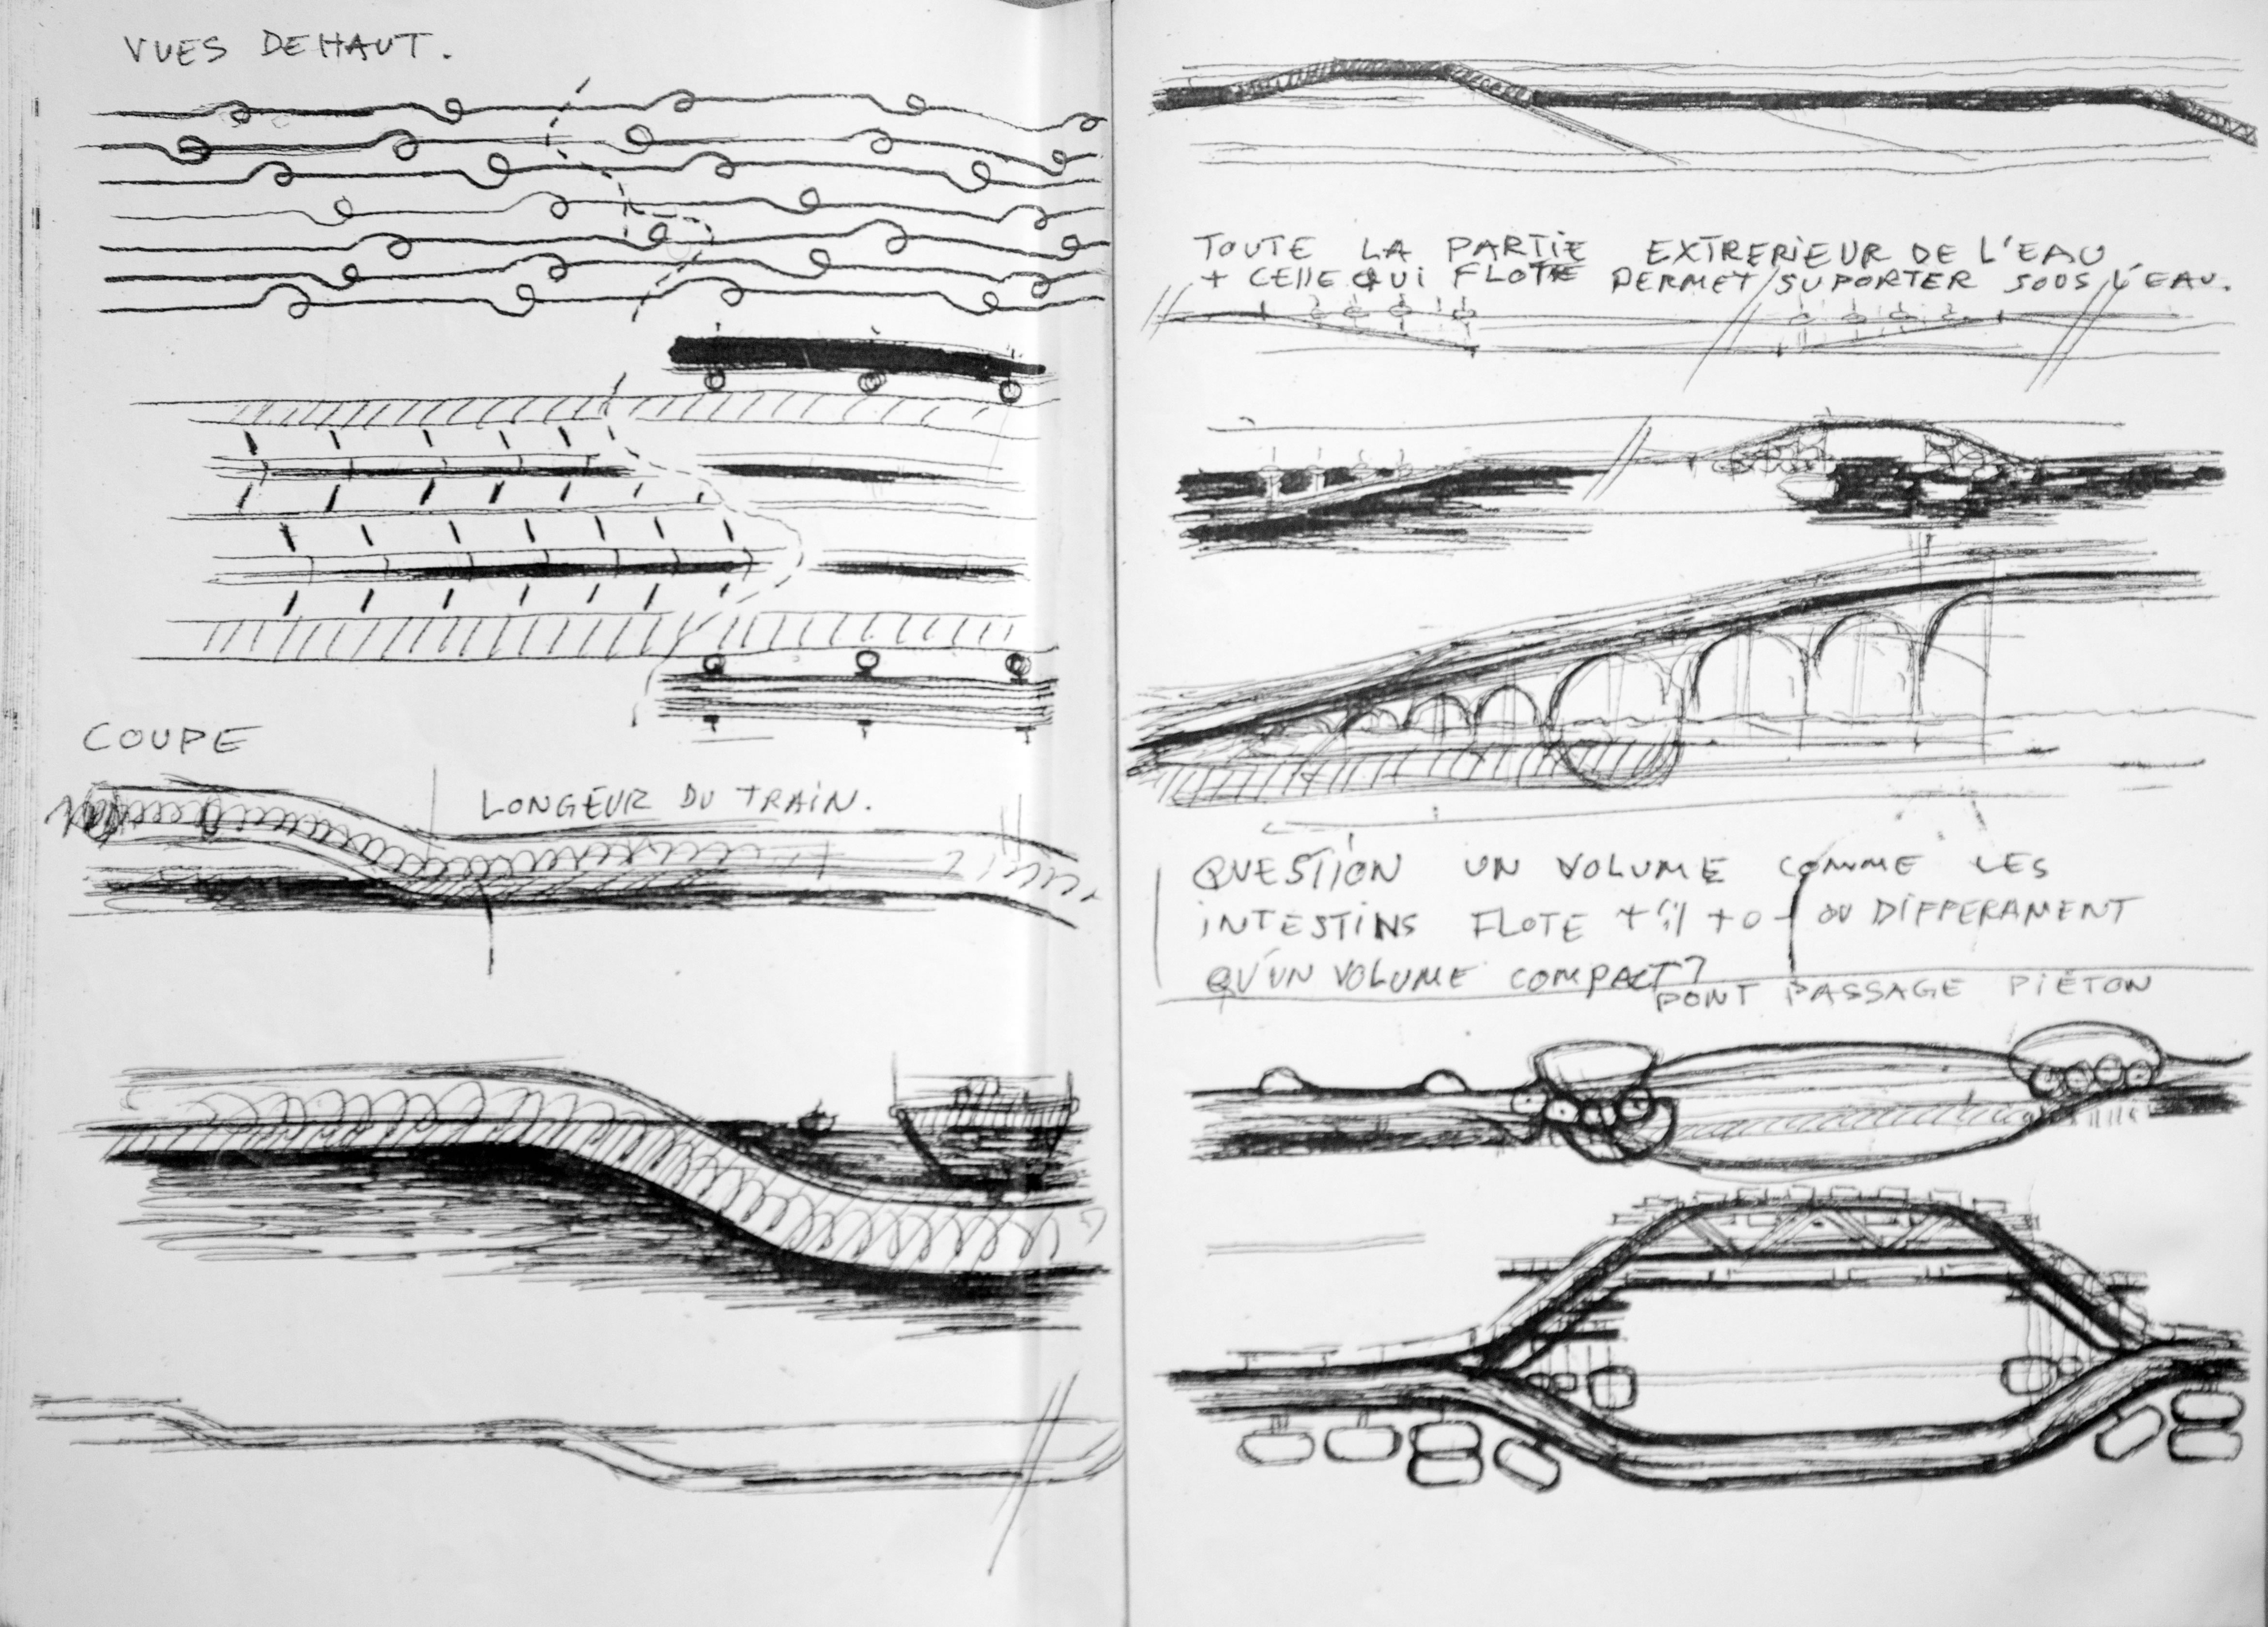 VUES DE HAUT.
COUPE
LONGEUR DU TRAIN.
TOUTE LA PARTIE EXTRERIEUR DE L'EAU
+ CELLE QUI FLOTE PERMET SUPORTER SOUS L'EAU.
QUESTION UN VOLUME COMME LES
INTESTINS FLOTE + OU DIFFERAMENT
QU'UN VOLUME COMPACT?
PONT PASSAGE PIÉTON